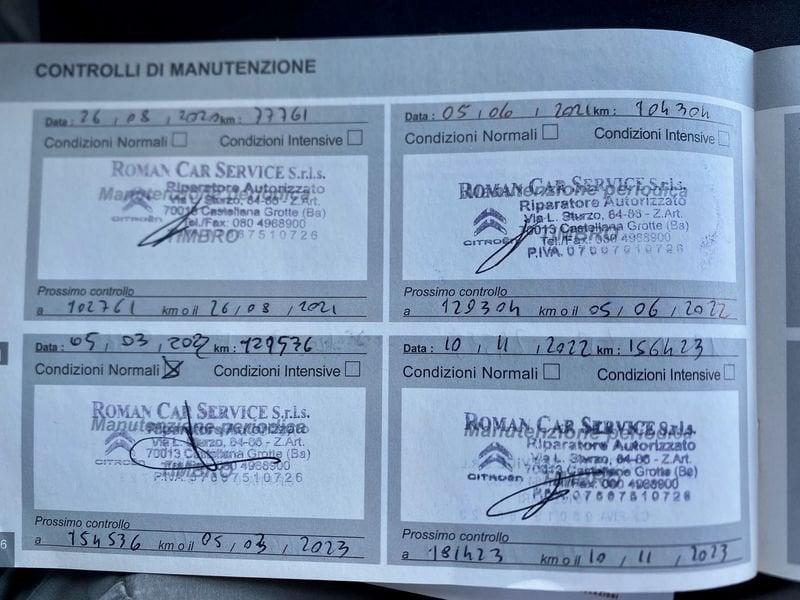 CONTROLLI DI MANUTENZIONE
Data : 26 / 08 / 2020 km : 77761
Condizioni Normali Condizioni Intensive
ROMAN CAR SERVICE S.r.l.s.
Manutenzione periodica
Riparatore Autorizzato
Via L. Sturzo, 64-66 - Z.Art.
70013 Castellana Grotte (Ba)
CITROËN
Tel./Fax: 080 4968900
TIMBRO
07687510726
Prossimo controllo
a 102761 km o il 26 / 08 / 2021
Data : 05 / 06 / 2021 km : 104304
Condizioni Normali Condizioni Intensive
ROMAN CAR SERVICE S.r.l.s.
Manutenzione periodica
Riparatore Autorizzato
Via L. Sturzo, 64-66 - Z.Art.
70013 Castellana Grotte (Ba)
CITROËN
Tel./Fax: 080 4968900
TIMBRO
P.IVA. 07687510726
Prossimo controllo
a 129304 km o il 05 / 06 / 2022
Data : 05 / 03 / 2022 km : 129536
Condizioni Normali Condizioni Intensive
ROMAN CAR SERVICE S.r.l.s.
Manutenzione periodica
Riparatore Autorizzato
Via L. Sturzo, 64-66 - Z.Art.
70013 Castellana Grotte (Ba)
CITROËN
080 4968900
P.IVA. 07687510726
Prossimo controllo
a 154536 km o il 05 / 03 / 2023
Data : 10 / 11 / 2022 km : 156423
Condizioni Normali Condizioni Intensive
ROMAN CAR SERVICE S.r.l.s.
Manutenzione periodica
Riparatore Autorizzato
Via L. Sturzo, 64-66 - Z.Art.
70013 Castellana Grotte (Ba)
CITROËN
Tel./Fax: 080 4968900
07687510726
Prossimo controllo
a 181423 km o il 10 / 11 / 2023
6